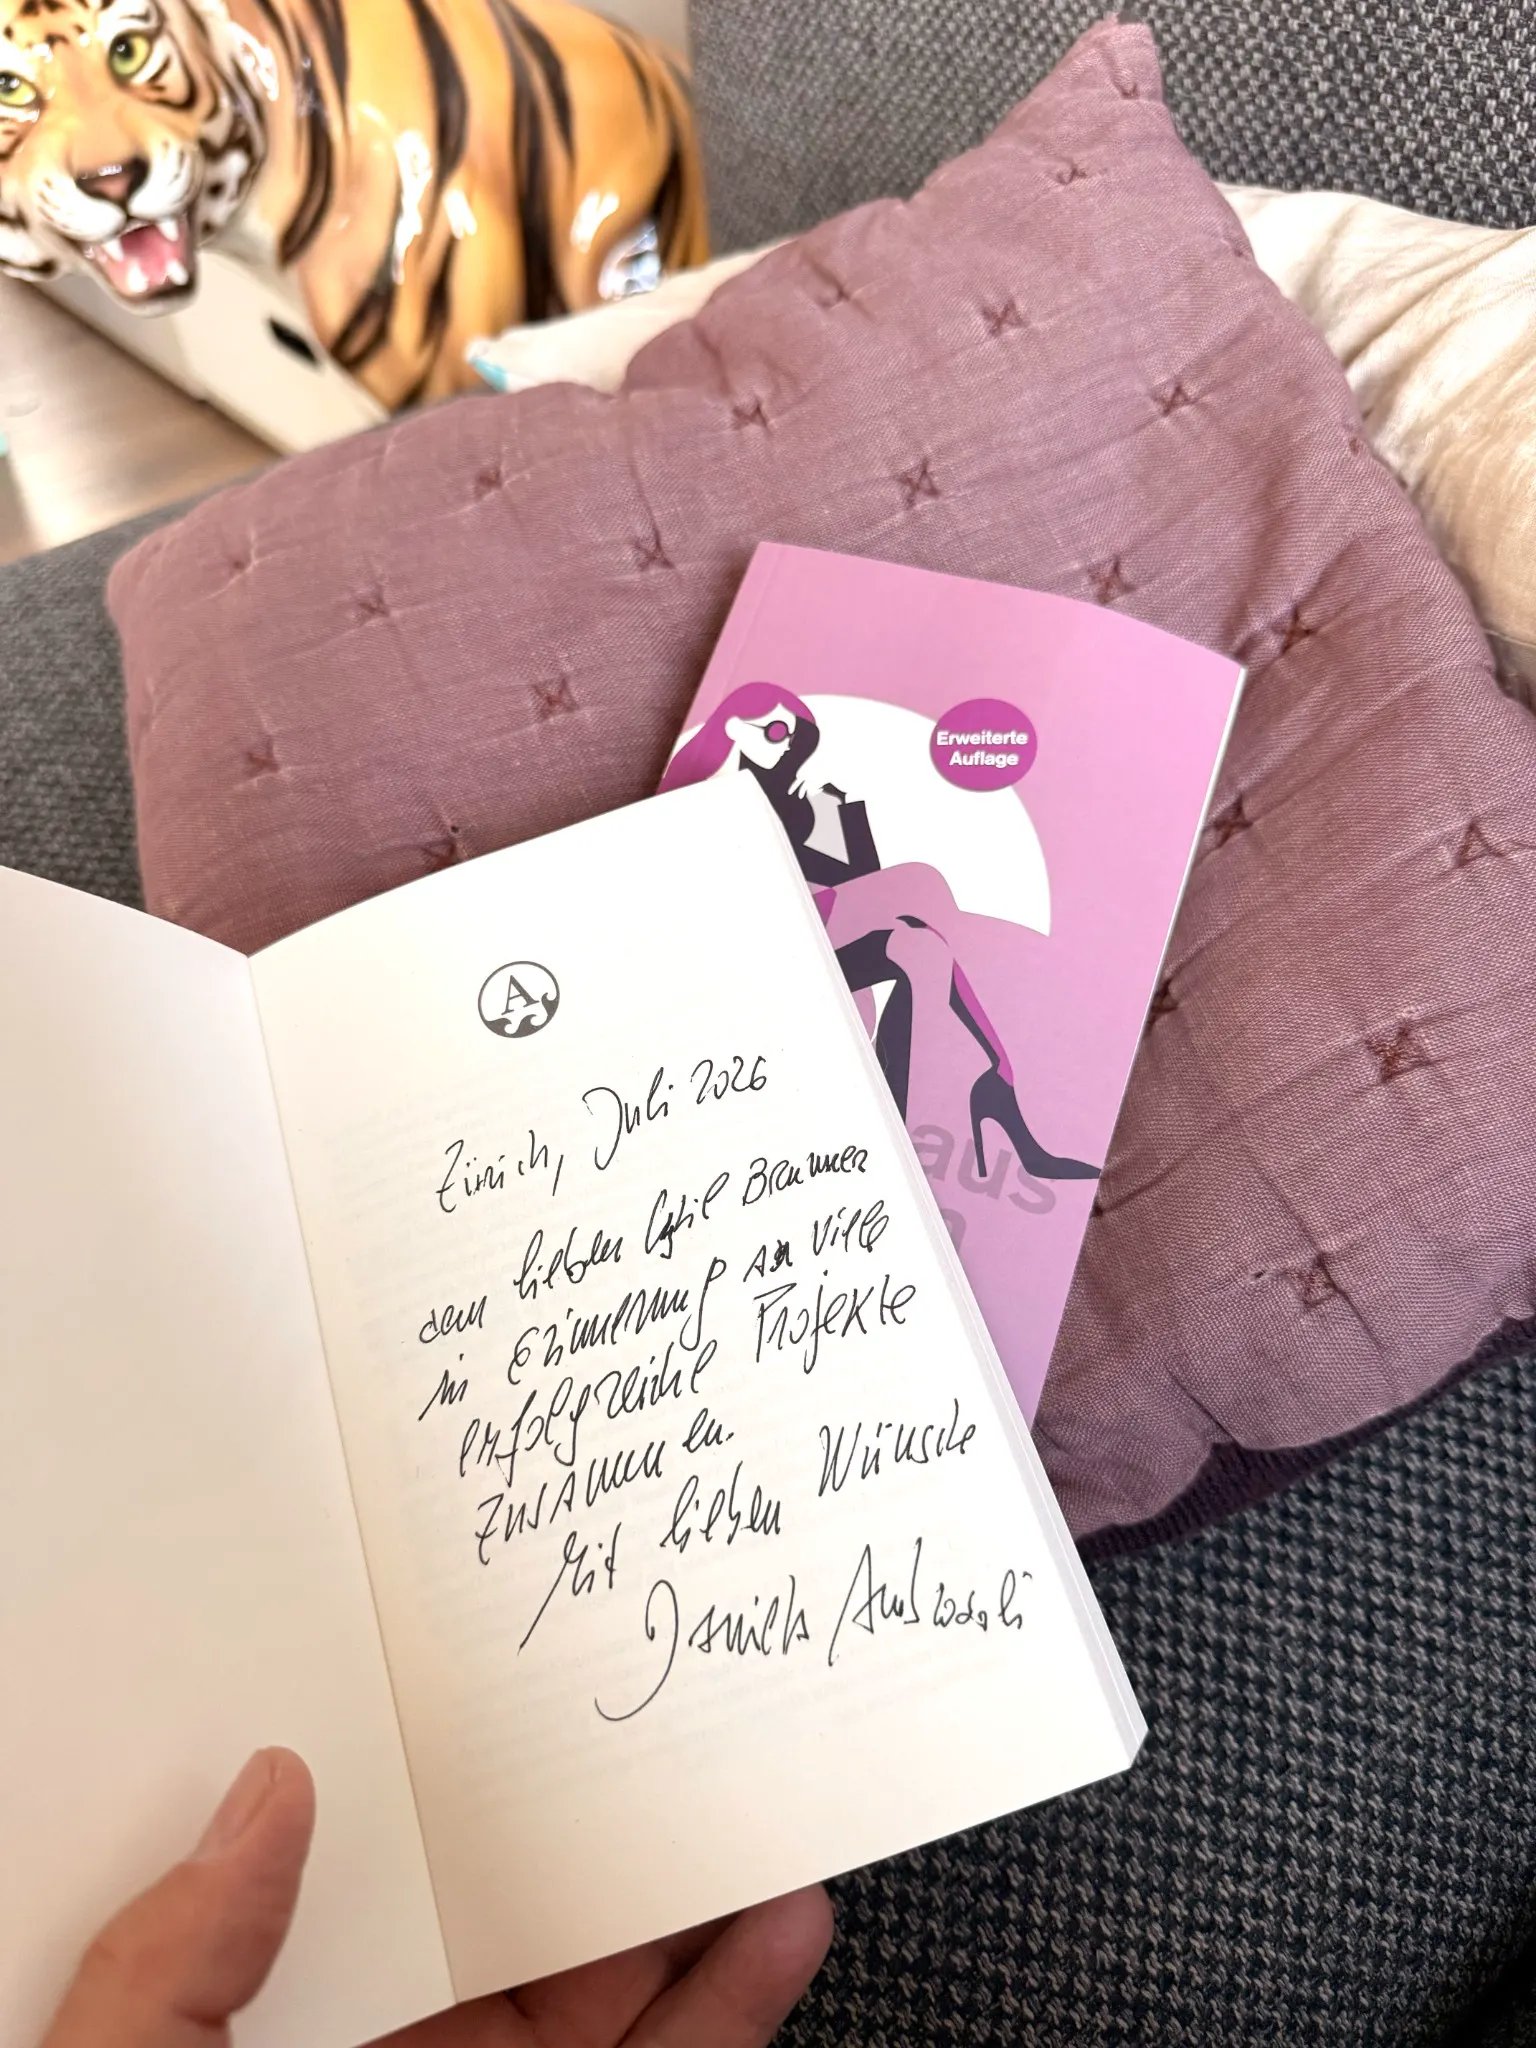 Erweiterte
Auflage
aus
A
Zürich, Juli 2026
dem lieben Cyril Brunner
in Erinnerung an viele
erfolgreiche Projekte
zusammen.
Mit lieben Wünsche
Daniela